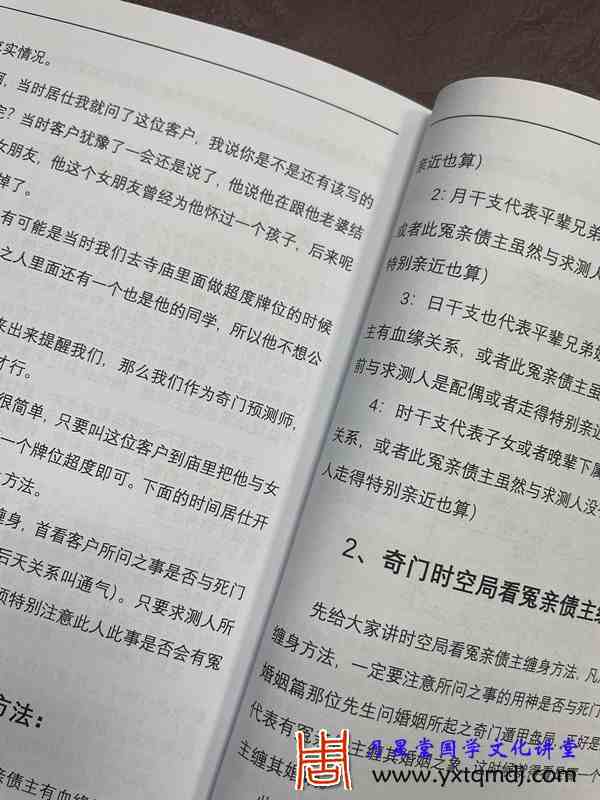 实情况。
当时居仕我就问了这位客户，我说你是不是还有该写的
？当时客户犹豫了一会还是说了，他说他在跟他老婆结
女朋友，他这个女朋友曾经为他怀过一个孩子，后来呢
掉了。
有可能是当时我们去寺庙里面做超度牌位的时候
之人里面还有一个也是他的同学，所以他不想公
来出来提醒我们，那么我们作为奇门预测师，
才行。
很简单，只要叫这位客户到庙里把他与女
一个牌位超度即可。下面的时间居仕开
方法。
缠身，首看客户所问之事是否与死门
后天关系叫通气）。只要求测人所
须特别注意此人此事是否会有冤
方法：
亲债主有血缘关
亲近也算）
2：月干支代表平辈兄弟
或者此冤亲债主虽然与求测人
特别亲近也算）
3：日干支也代表平辈兄弟
主有血缘关系，或者此冤亲债主虽
前与求测人是配偶或者走得特别亲近
4：时干支代表子女或者晚辈下属
关系，或者此冤亲债主虽然与求测人没
人走得特别亲近也算）
2、奇门时空局看冤亲债主
先给大家讲时空局看冤亲债主缠身方法，凡
缠身方法，一定要注意所问之事的用神是否与死门
婚姻篇那位先生问婚姻所起之奇门遁甲盘局，正好是
代表有冤亲债主缠其婚姻之象
主缠其婚
月星堂国学文化讲堂
www.yxtqmdj.com